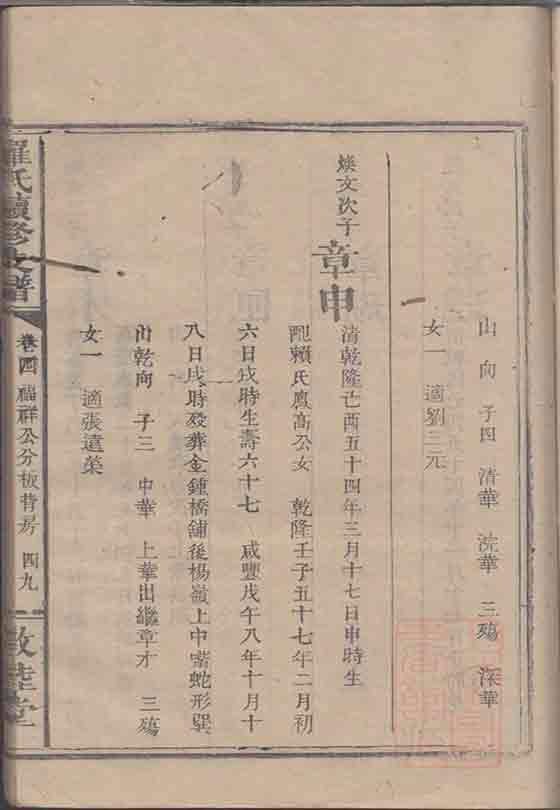 山 向 子四 清華 浣華 三殤 深華
女一 適劉三元
煥文次子
章申
清乾隆己酉五十四年三月十七日申時生
配賴氏鳳高公女 乾隆壬子五十七年二月初
六日戌時生壽六十七 咸豐戊午八年十月十
八日戌時歿葬金鍾橋舖後楊嶺上中嘴蛇形巽
山乾向 子三 中華 上華出繼章才 三殤
女一 適張遺榮
羅氏續修支譜
卷四 福祥公分板背房 四九
敦睦堂